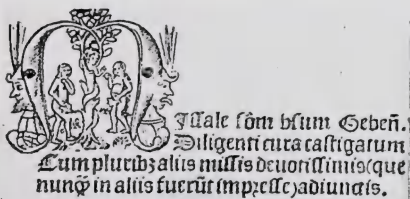 Missale scďm vsum Gebeñ.
Diligenti cura castigatum
Cum pluribꝫ aliis missis deuotissimis (que
nunq̃ in aliis fuerũt impresse) adiunctis.